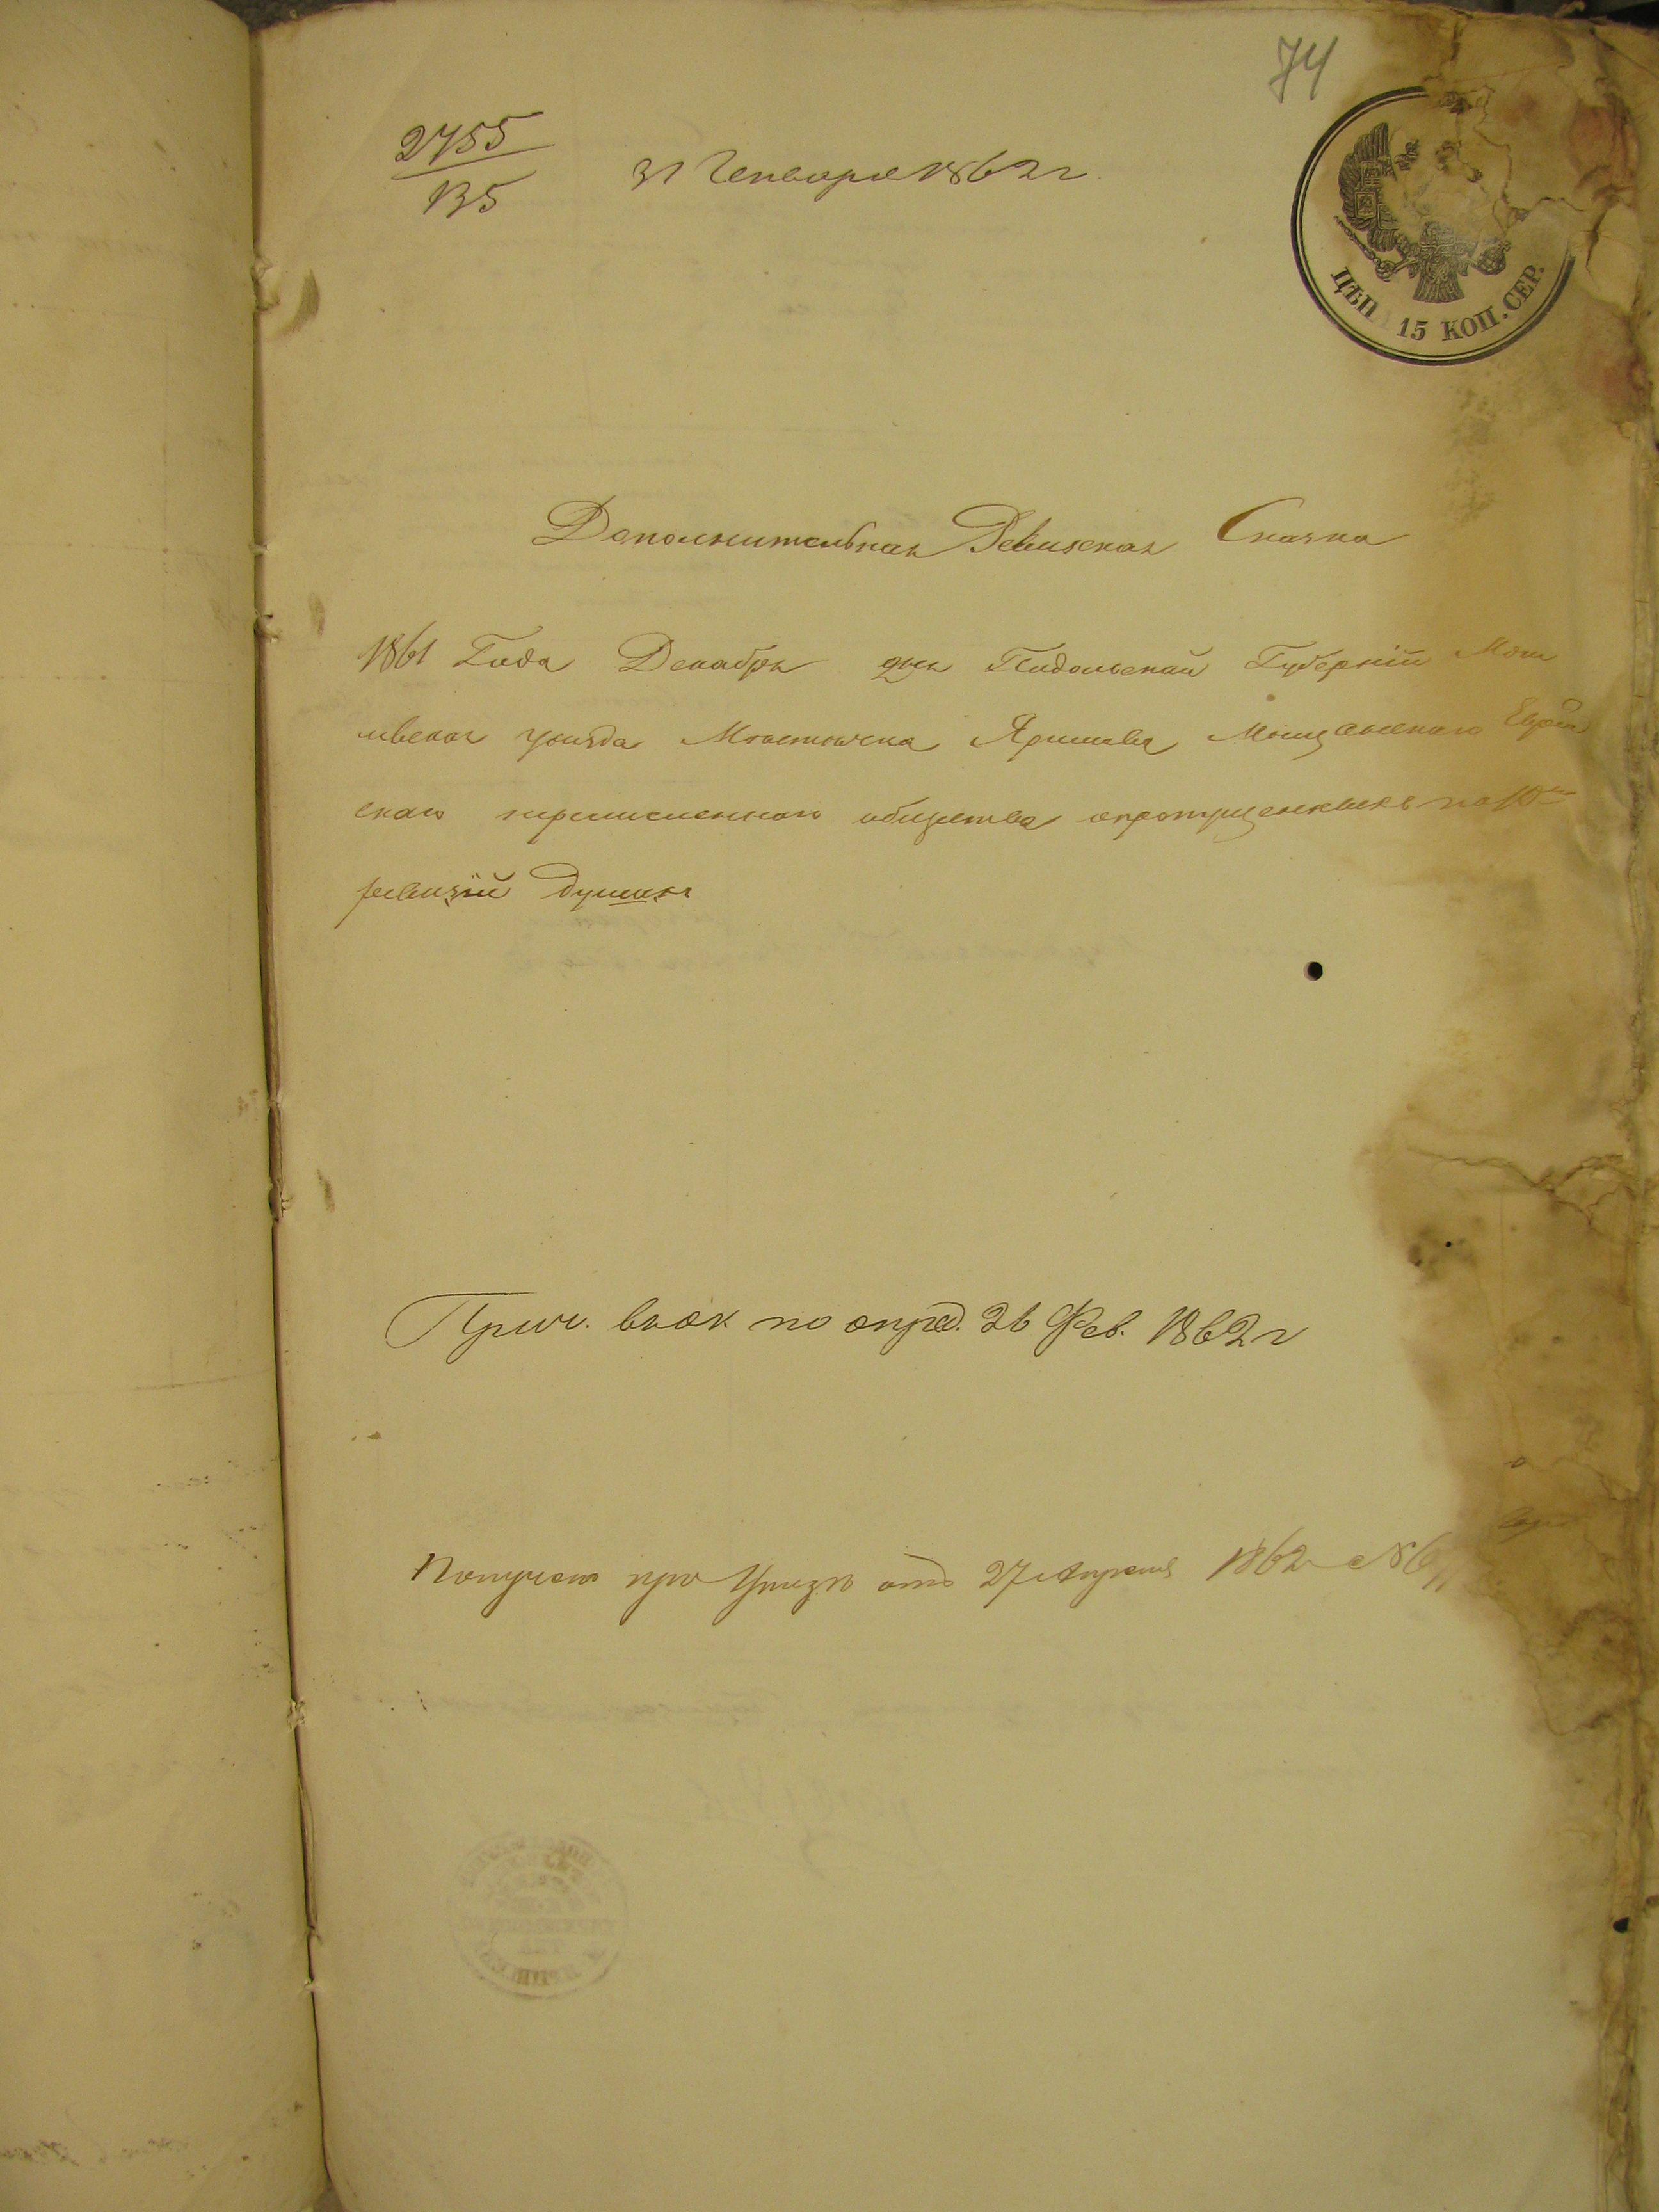 74
2755
135
31 Генваря 1862 г.
ЦѢН 15 КОП. СЕР.
Дополнительная Ревизская Сказка
1861 Года Декабря дня Подольской Губерніи Моги
левског уѣзда Мѣстечка Яришева Мещанского Еврей
скаго перечисленнаго общества опропущенныхъ по 10й
ревизіи душахъ
по опред. 26 Фев. 1862 г
Получено при Указѣ отъ 27 Апреля 1862 №